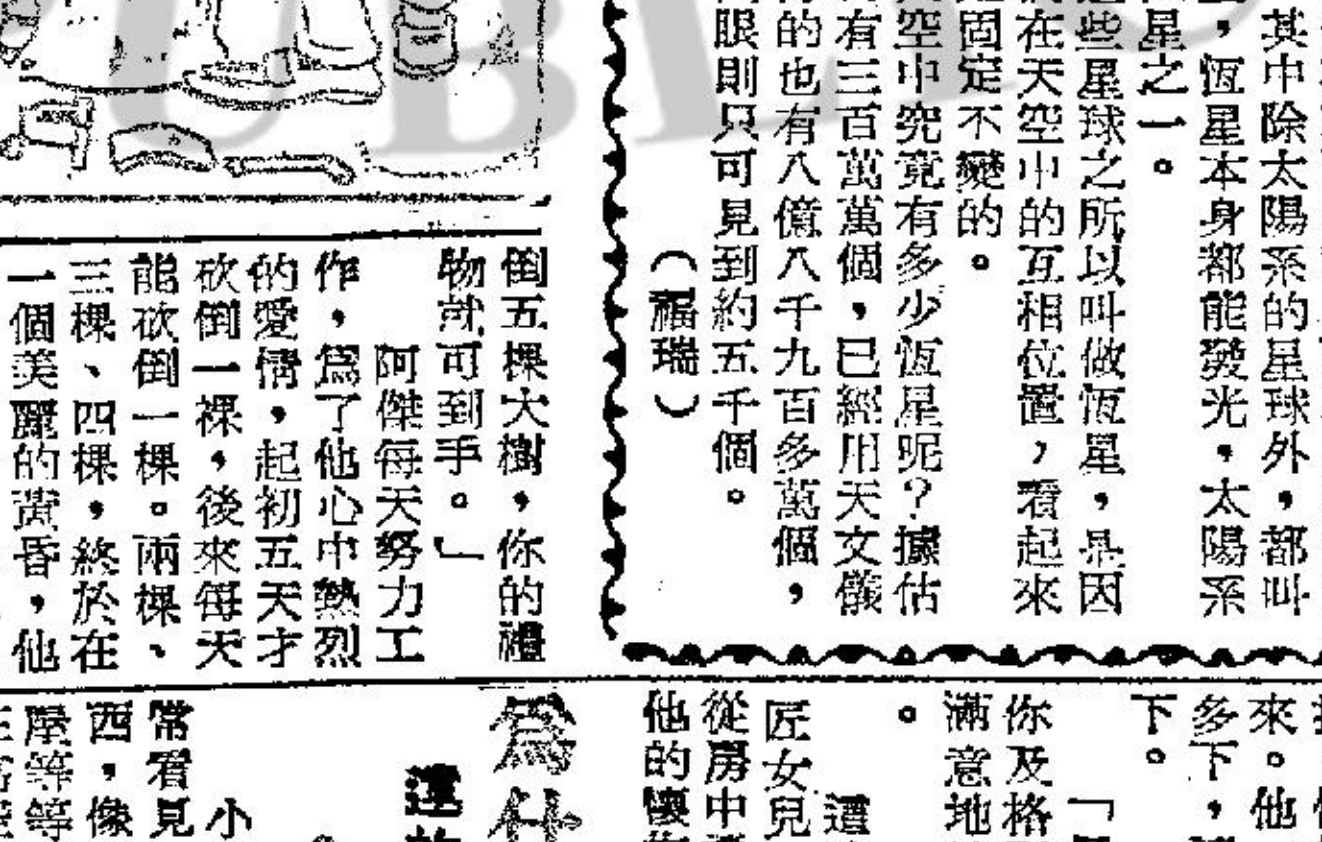 其中除太陽系的星球外，都叫
，恆星本身都能發光，太陽系
星之一。
些星球之所以叫做恆星，是因
在天空中的互相位置，看起來
固定不變的。
空中究竟有多少恆星呢？據估
有三百萬萬個，已經用天文儀
的也有八億八千九百多萬個，
眼則只可見到約五千個。
（福瑞）
倒五棵大樹，你的禮
物就可到手。」
阿傑每天努力工
作，爲了他心中熱烈
的愛情，起初五天才
砍倒一裸，後來每天
能砍倒一棵。兩棵、
三棵、四棵，終於在
一個美麗的黃昏，他
來。他
多下，
下。
你及格
滿意地
。
遭
匠女兒
從房中
他的懷
爲什
小
常看見
西，像
屋等等